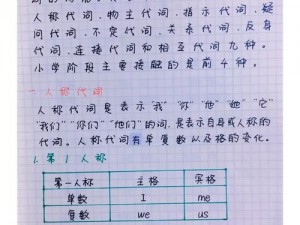 人称代词，物主代词，指示代词，疑
问代词，不定代词，关系代词，反身
代词，连接代词和相互代词九种。
小学阶段主要接触的是前4种。
一 人称代词
人称代词是表示我"你"他"她"它"
"我们"你们"他们"的词，是表示自身或人称的
代词。人称代词有单复数以及格的变化。
1. 第1人称
第一人称 主格 宾格
单数 I me
复数 we us